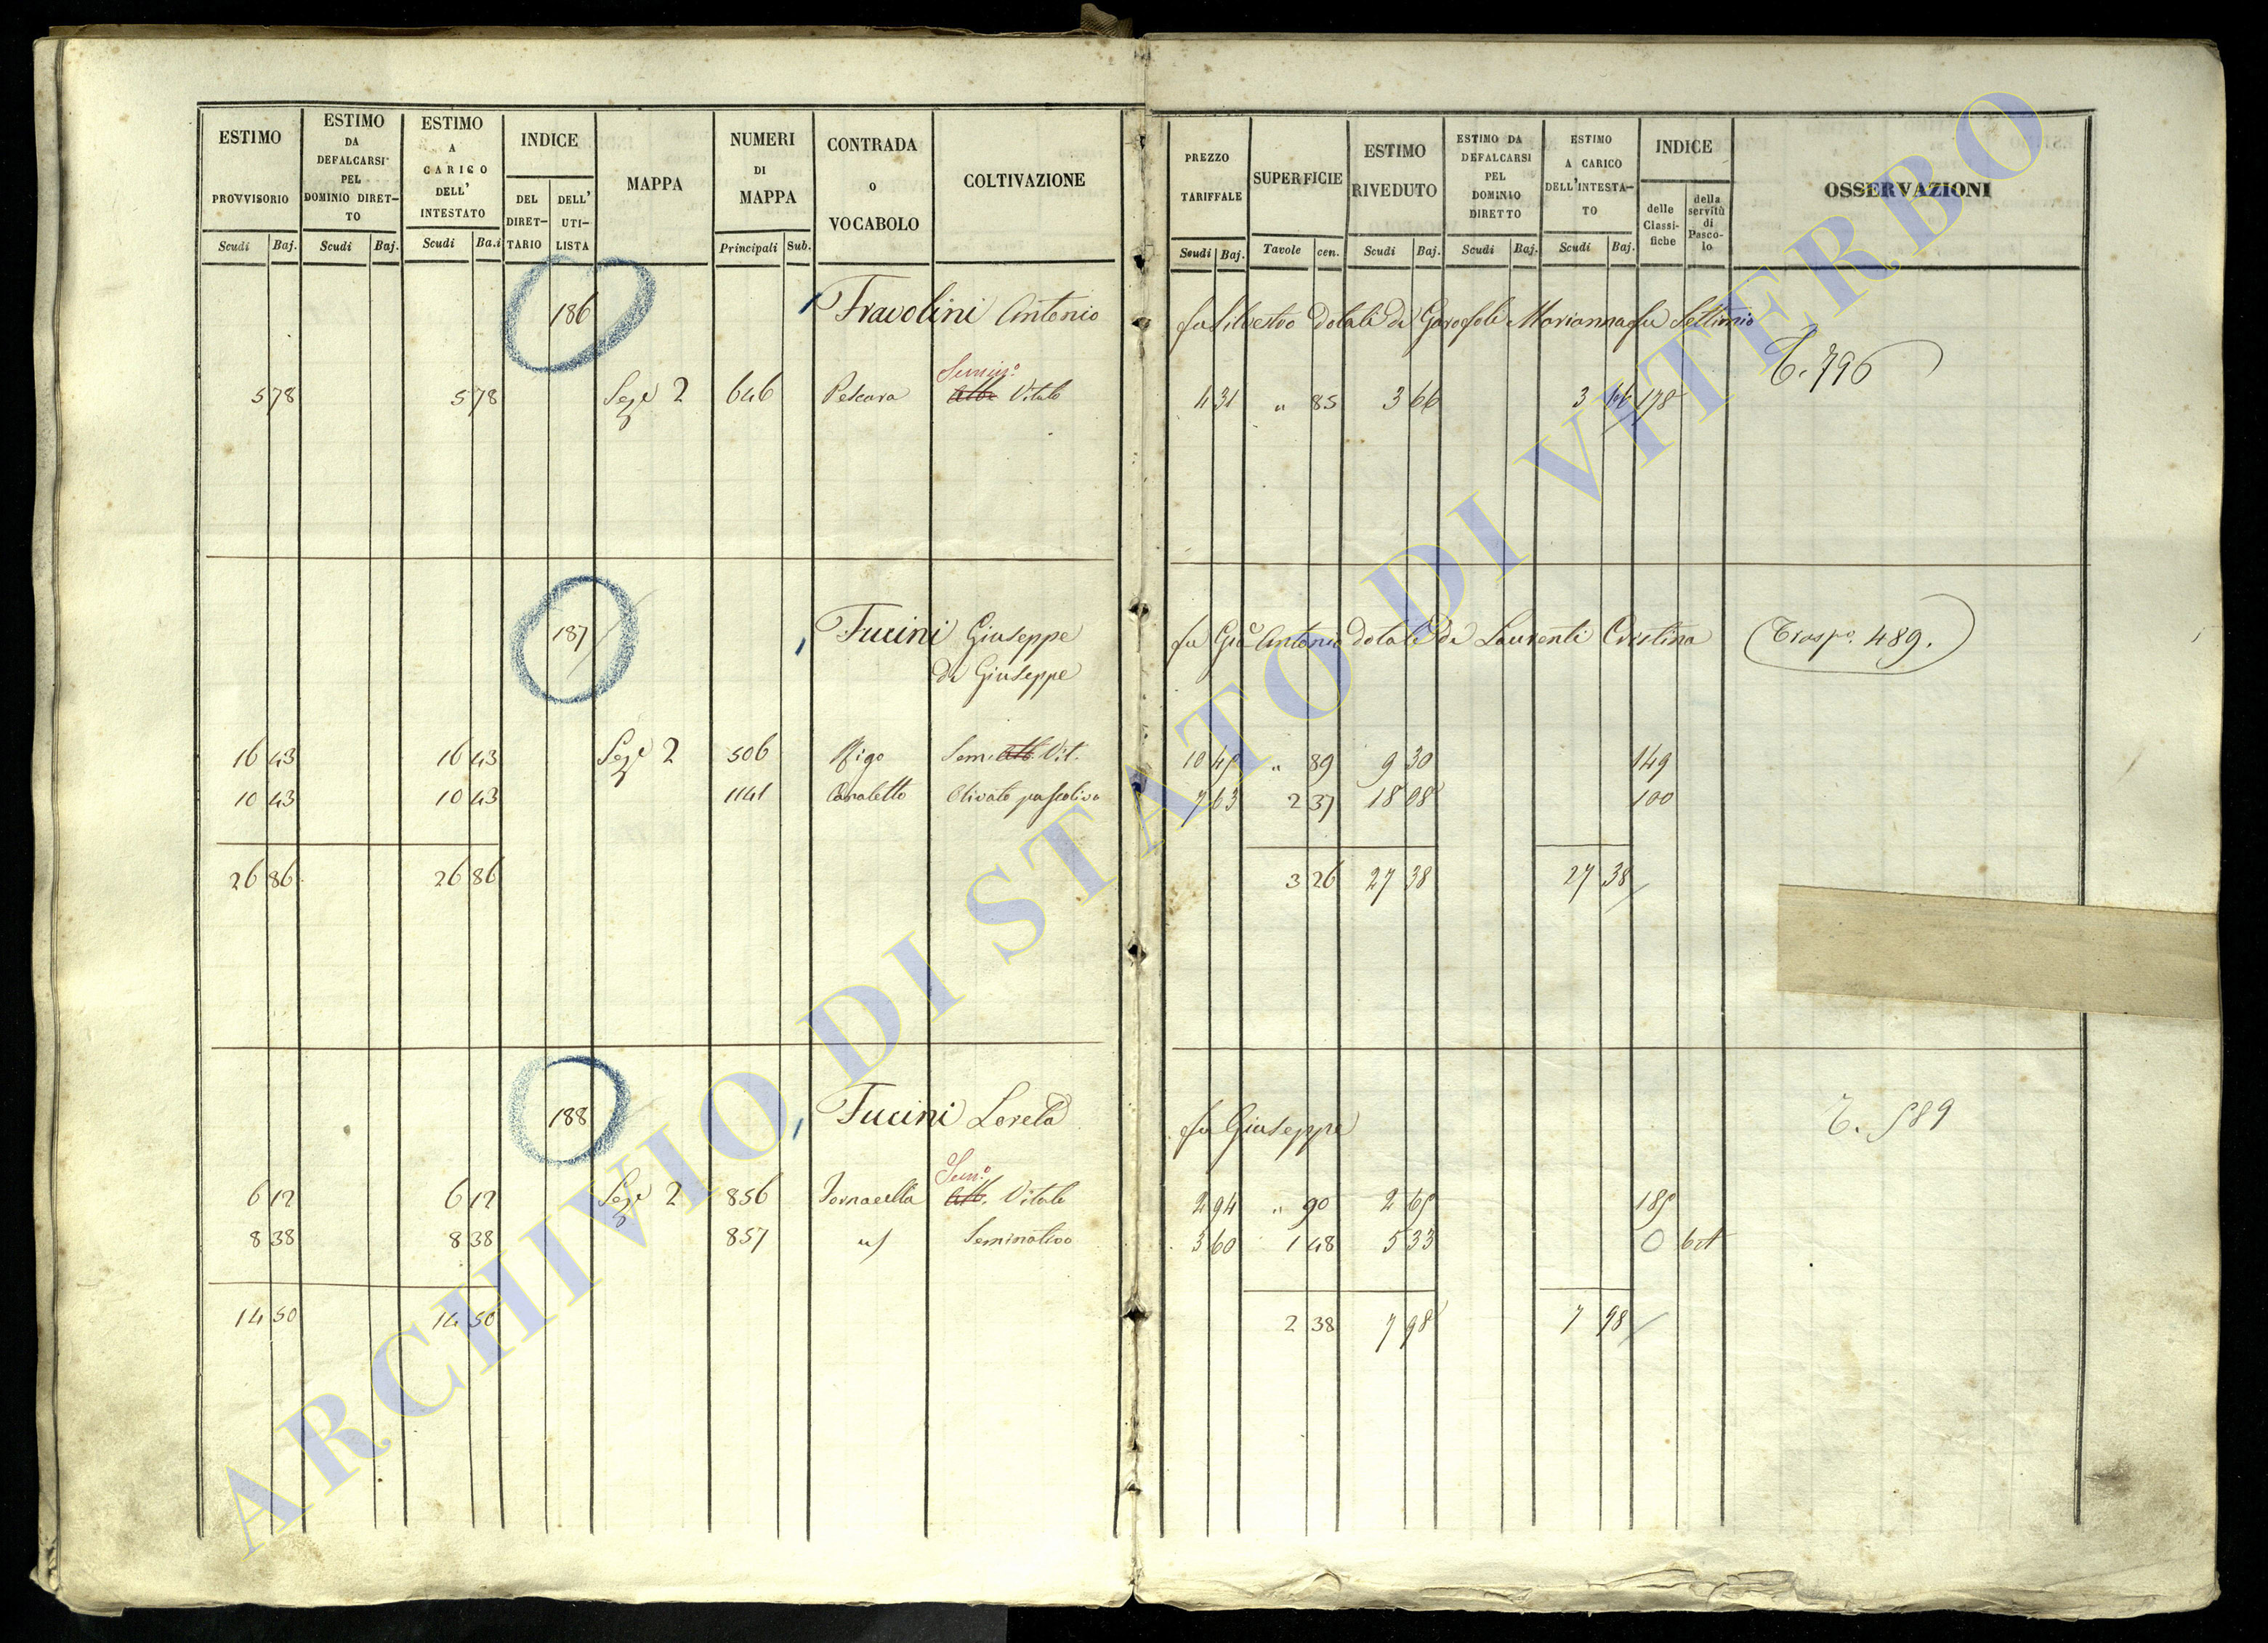 ESTIMO PROVVISORIO Scudi Baj.
ESTIMO DA DEFALCARSI PEL DOMINIO DIRETTO Scudi Baj.
ESTIMO A CARICO DELL' INTESTATO Scudi Ba.i
INDICE DEL DIRETTARIO DELL' UTILISTA
MAPPA
NUMERI DI MAPPA Principali Sub.
CONTRADA O VOCABOLO
COLTIVAZIONE
PREZZO TARIFFALE Scudi Baj.
SUPERFICIE Tavole cen.
ESTIMO RIVEDUTO Scudi Baj.
ESTIMO DA DEFALCARSI PEL DOMINIO DIRETTO Scudi Baj.
ESTIMO A CARICO DELL'INTESTATO Scudi Baj.
INDICE delle Classifiche della servitù di Pascolo
OSSERVAZIONI
186 Fravolini Antonio fu Silvestro dotali di Garofoli Marianna fu Settimio
T. 796
Semin.o
5 78 5 78 Sez.e 2 646 Pescara Alb. Vitato 4 31 " 85 3 66 3 66 178
187 Fucini Giuseppe fu Gio. Antonio dotale di Laurenti Cristina Trasp.o 489.
di Giuseppe
16 43 16 43 Sez.e 2 506 Rigo Sem. Alb. Vit. 10 45 " 89 9 30 149
10 43 10 43 1141 Canaletto Olivato pascolivo 7 63 2 37 18 08 100
26 86 26 86 3 26 27 38 27 38
188 Fucini Loreta fu Giuseppe T. 589
Sem.o
6 12 6 12 Sez.e 2 856 Fornacella Alb. Vitato 2 94 " 90 2 65 185
8 38 8 38 857 Seminativo 3 60 1 48 5 33 0
14 50 14 50 2 38 7 98 7 98
ARCHIVIO DI STATO DI VITERBO